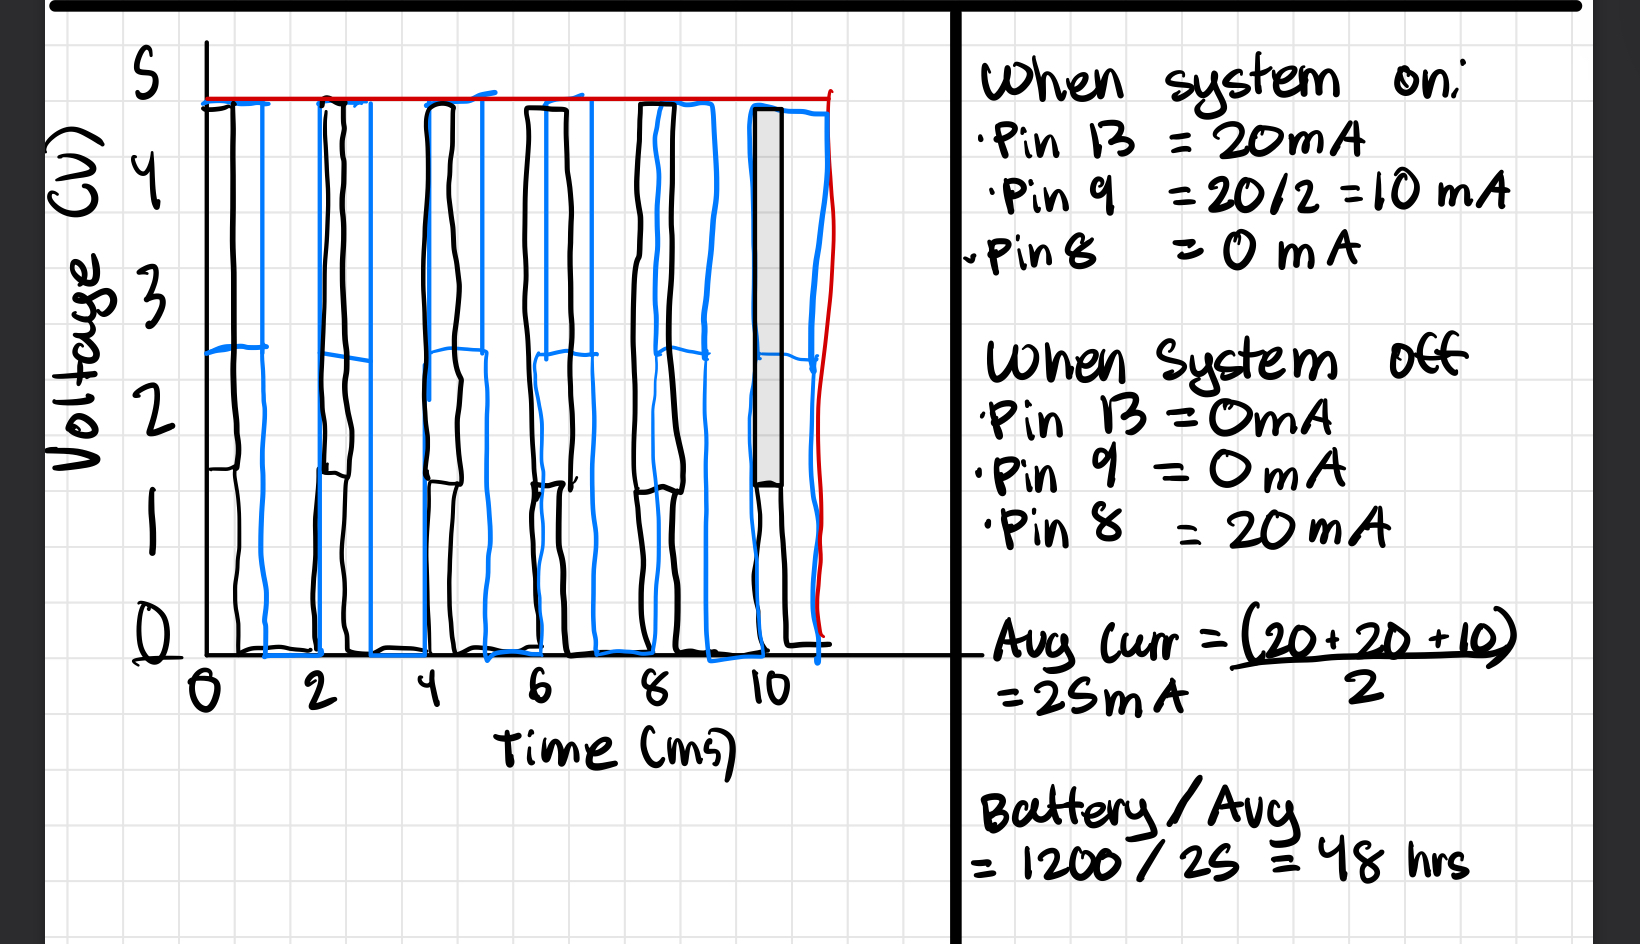 Voltage (V)
5
4
3
2
1
0
0 2 4 6 8 10
Time (ms)
When system on:
· Pin 13 = 20mA
· Pin 9 = 20/2 = 10 mA
· Pin 8 = 0 mA
When System off
· Pin 13 = 0mA
· Pin 9 = 0mA
· Pin 8 = 20mA
Avg Curr = (20 + 20 + 10)
2
= 25mA
Battery / Avg
= 1200 / 25 = 48 hrs